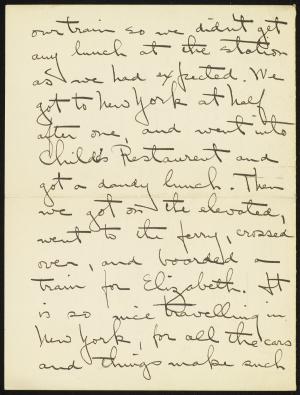 our train so we didn't get
any lunch at the station
as we had expected. We
got to New York at half
after one, and went into
Childs Restaurant and
got a dandy lunch. Then
we got on the elevated,
went to the ferry, crossed
over, and boarded a
train for Elizabeth. It
is so nice travelling in
New York, for all the cars
and things make such